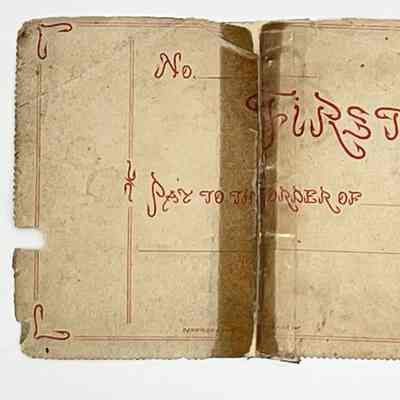 No.
FIRST
PAY TO THE ORDER OF